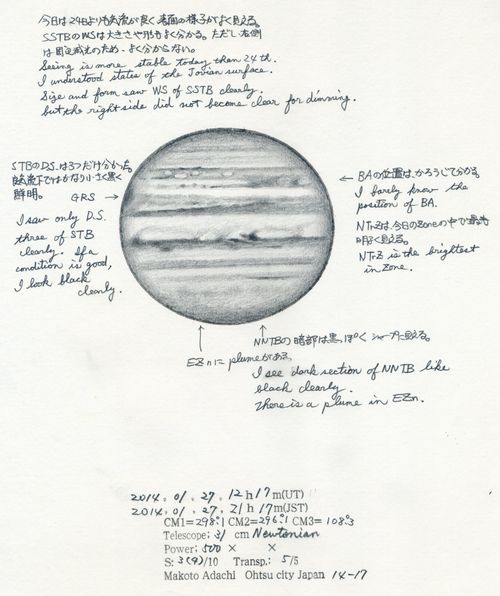 今日は24日よりも気流が良く表面の様子がよく見える。
SSTBのWSは大きさや形もよく分かる。ただし右側
は周辺減光のため、よく分からない。
Seeing is more stable today than 24th.
I understood states of the Jovian surface.
Size and form saw WS of SSTB clearly.
but the right side did not become clear for dimming.
STBのD.S.は3つだけ分かった。
良気流下ではかなり小さく黒く
鮮明。
GRS →
I saw only D.S.
three of STB
clearly. If a
condition is good,
I look black
clearly.
← BAの位置は、かろうじて分かる。
I barely knew the
position of BA.
NTrZは、今日のZoneの中で最も
明るく見える。
NTrZ is the brightest
in zone.
NNTBの暗部は黒っぽくシャープに見える。
EZnにplumeがある。
I see dark section of NNTB like
black clearly.
There is a plume in EZn.
2014. 01. 27. 12h 17m(UT)
2014. 01. 27. 21h 17m(JST)
CM1=298°.1 CM2=296°.1 CM3=108°.3
Telescope; 31 cm Newtonian
Power; 500 × ×
S: 3(9)/10 Transp.: 5/5
Makoto Adachi Ohtsu city Japan 14-17